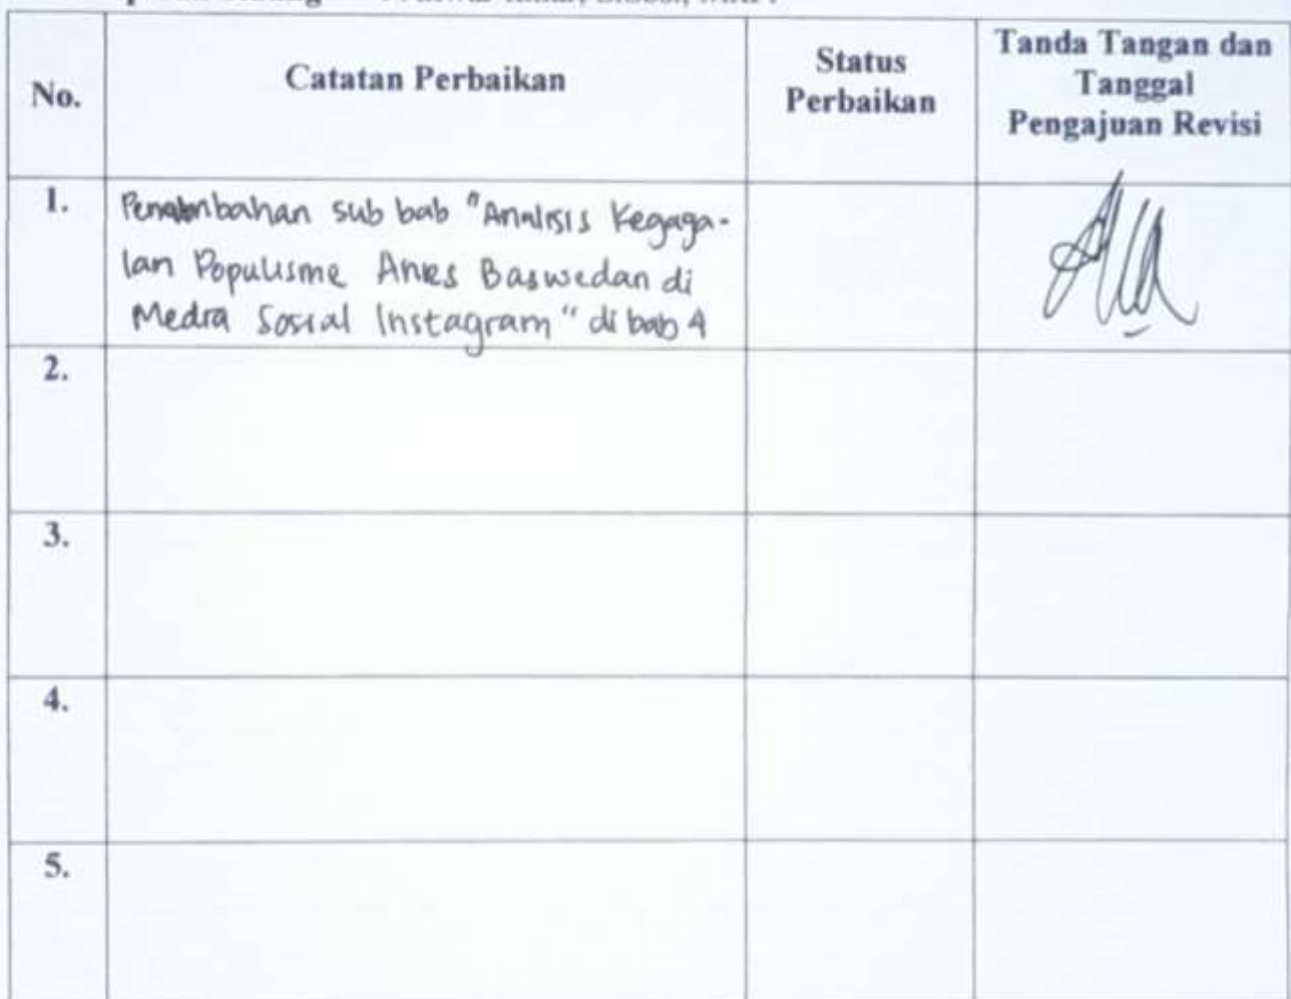 No.
Catatan Perbaikan
Status
Perbaikan
Tanda Tangan dan
Tanggal
Pengajuan Revisi
1.
Penambahan sub bab "Analisis Kegaga-
lan Populisme Anies Baswedan di
Media Sosial Instagram" di bab 4
2.
3.
4.
5.